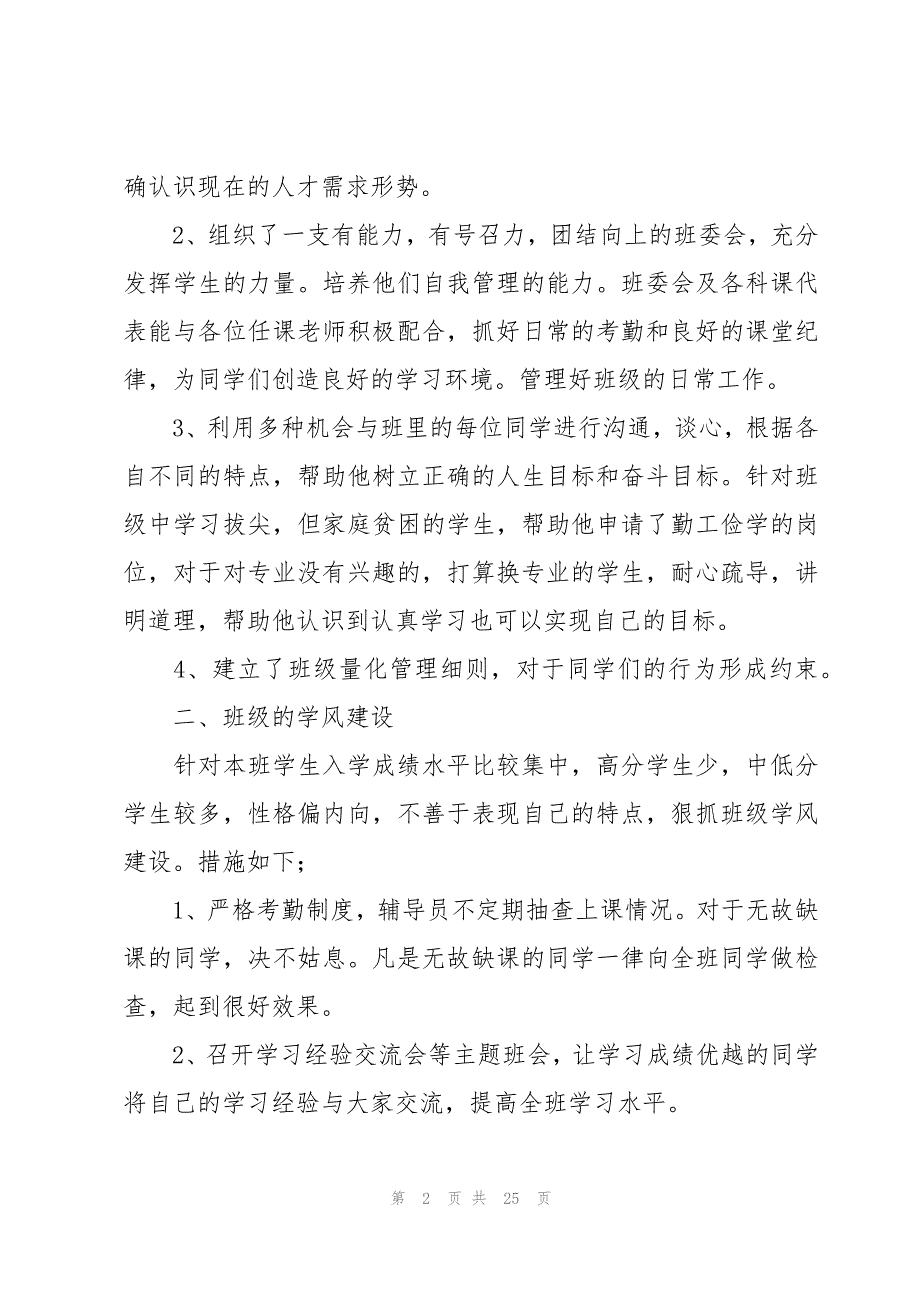 确认识现在的人才需求形势。
2、组织了一支有能力，有号召力，团结向上的班委会，充分
发挥学生的力量。培养他们自我管理的能力。班委会及各科课代
表能与各位任课老师积极配合，抓好日常的考勤和良好的课堂纪
律，为同学们创造良好的学习环境。管理好班级的日常工作。
3、利用多种机会与班里的每位同学进行沟通，谈心，根据各
自不同的特点，帮助他树立正确的人生目标和奋斗目标。针对班
级中学习拔尖，但家庭贫困的学生，帮助他申请了勤工俭学的岗
位，对于对专业没有兴趣的，打算换专业的学生，耐心疏导，讲
明道理，帮助他认识到认真学习也可以实现自己的目标。
4、建立了班级量化管理细则，对于同学们的行为形成约束。
二、班级的学风建设
针对本班学生入学成绩水平比较集中，高分学生少，中低分
学生较多，性格偏内向，不善于表现自己的特点，狠抓班级学风
建设。措施如下；
1、严格考勤制度，辅导员不定期抽查上课情况。对于无故缺
课的同学，决不姑息。凡是无故缺课的同学一律向全班同学做检
查，起到很好效果。
2、召开学习经验交流会等主题班会，让学习成绩优越的同学
将自己的学习经验与大家交流，提高全班学习水平。
第 2 页 共 25 页